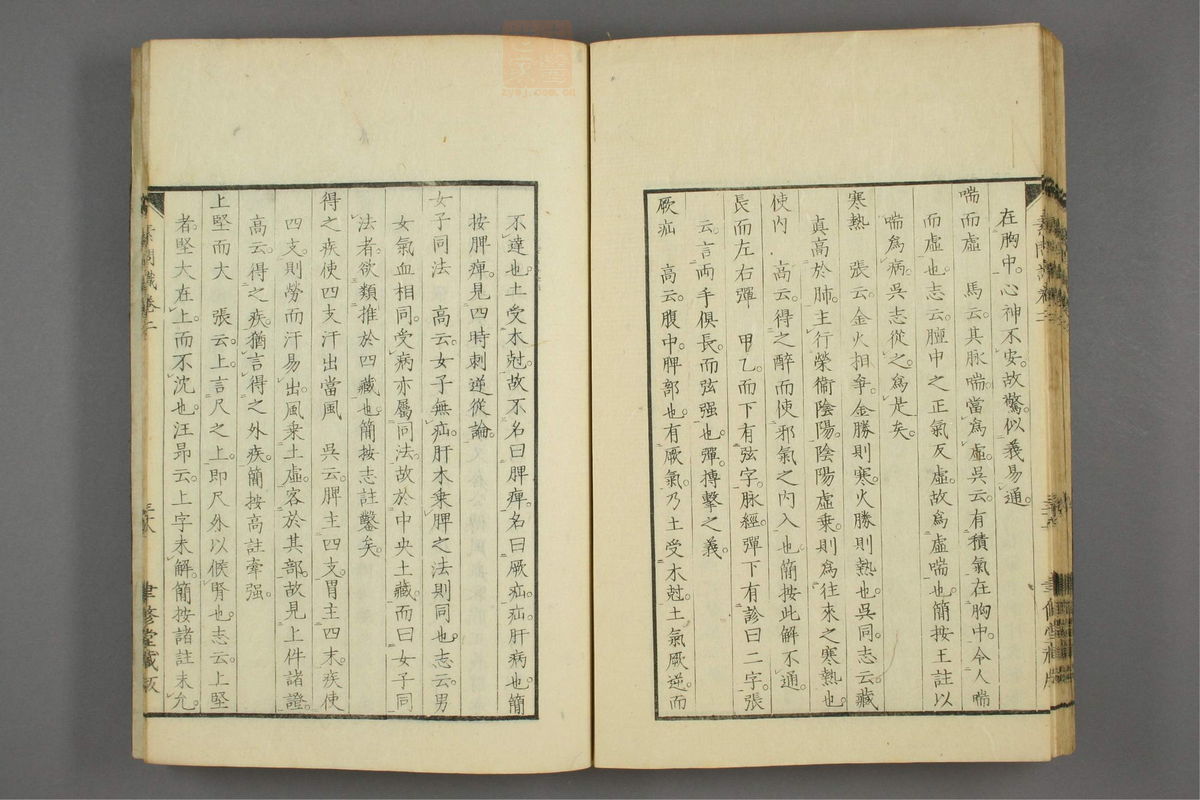 在胸中。心神不安。故驚。似義易通。
喘而虛　馬云。其脉喘。當爲虛。吳云。有積氣在胸中。令人喘
而虛也。志云。膻中之正氣反虛。故爲虛喘也。簡按王註以
喘爲病。吳志從之。爲是矣。
寒熱　張云。金火相爭。金勝則寒。火勝則熱也。吳同。志云。藏
真高於肺。主行榮衞陰陽。陰陽虛乘。則爲往來之寒熱也。
使內　高云。得之醉而使邪氣之內入也。簡按此解不通。
長而左右彈　甲乙而下有弦字。脉經彈下有診曰二字。張
云。言兩手俱長而弦强也。彈。搏擊之義。
厥疝　高云。腹中。脾部也。有厥氣。乃土受木尅。土氣厥逆。而
不達也。土受木尅。故不名曰脾痺。名曰厥疝。疝。肝病也。簡
按脾痺。見四時刺逆從論。
女子同法　高云。女子無疝。肝木乘脾之法則同也。志云。男
女氣血相同。受病亦屬同法。故於中央土藏。而曰女子同
法者。欲類推於四藏也。簡按志註鑿矣。
得之疾使四支汗出當風　吳云。脾主四支。胃主四末。疾使
四支。則勞而汗易出。風乘土虛。客於其部。故見上件諸證。
高云。得之疾。猶言得之外疾。簡按高註牽强。
上堅而大　張云。上言尺之上。即尺外以候腎也。志云。上堅
者。堅大在上而不沈也。汪昻云。上字未解。簡按諸註未允。
素問識卷二
聿修堂藏版
zysj.com.cn